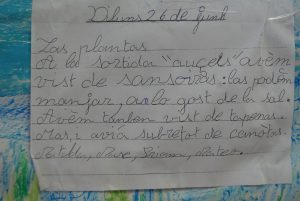 Diluns 26 de junh
Las plantas
A la sortida "aucèls" avèm
vist de sansoïras: las podèm
manjar, an lo gost de la sal.
Avèm tanben vist de tapenas.
Mas, i aviá subretot de canotas.